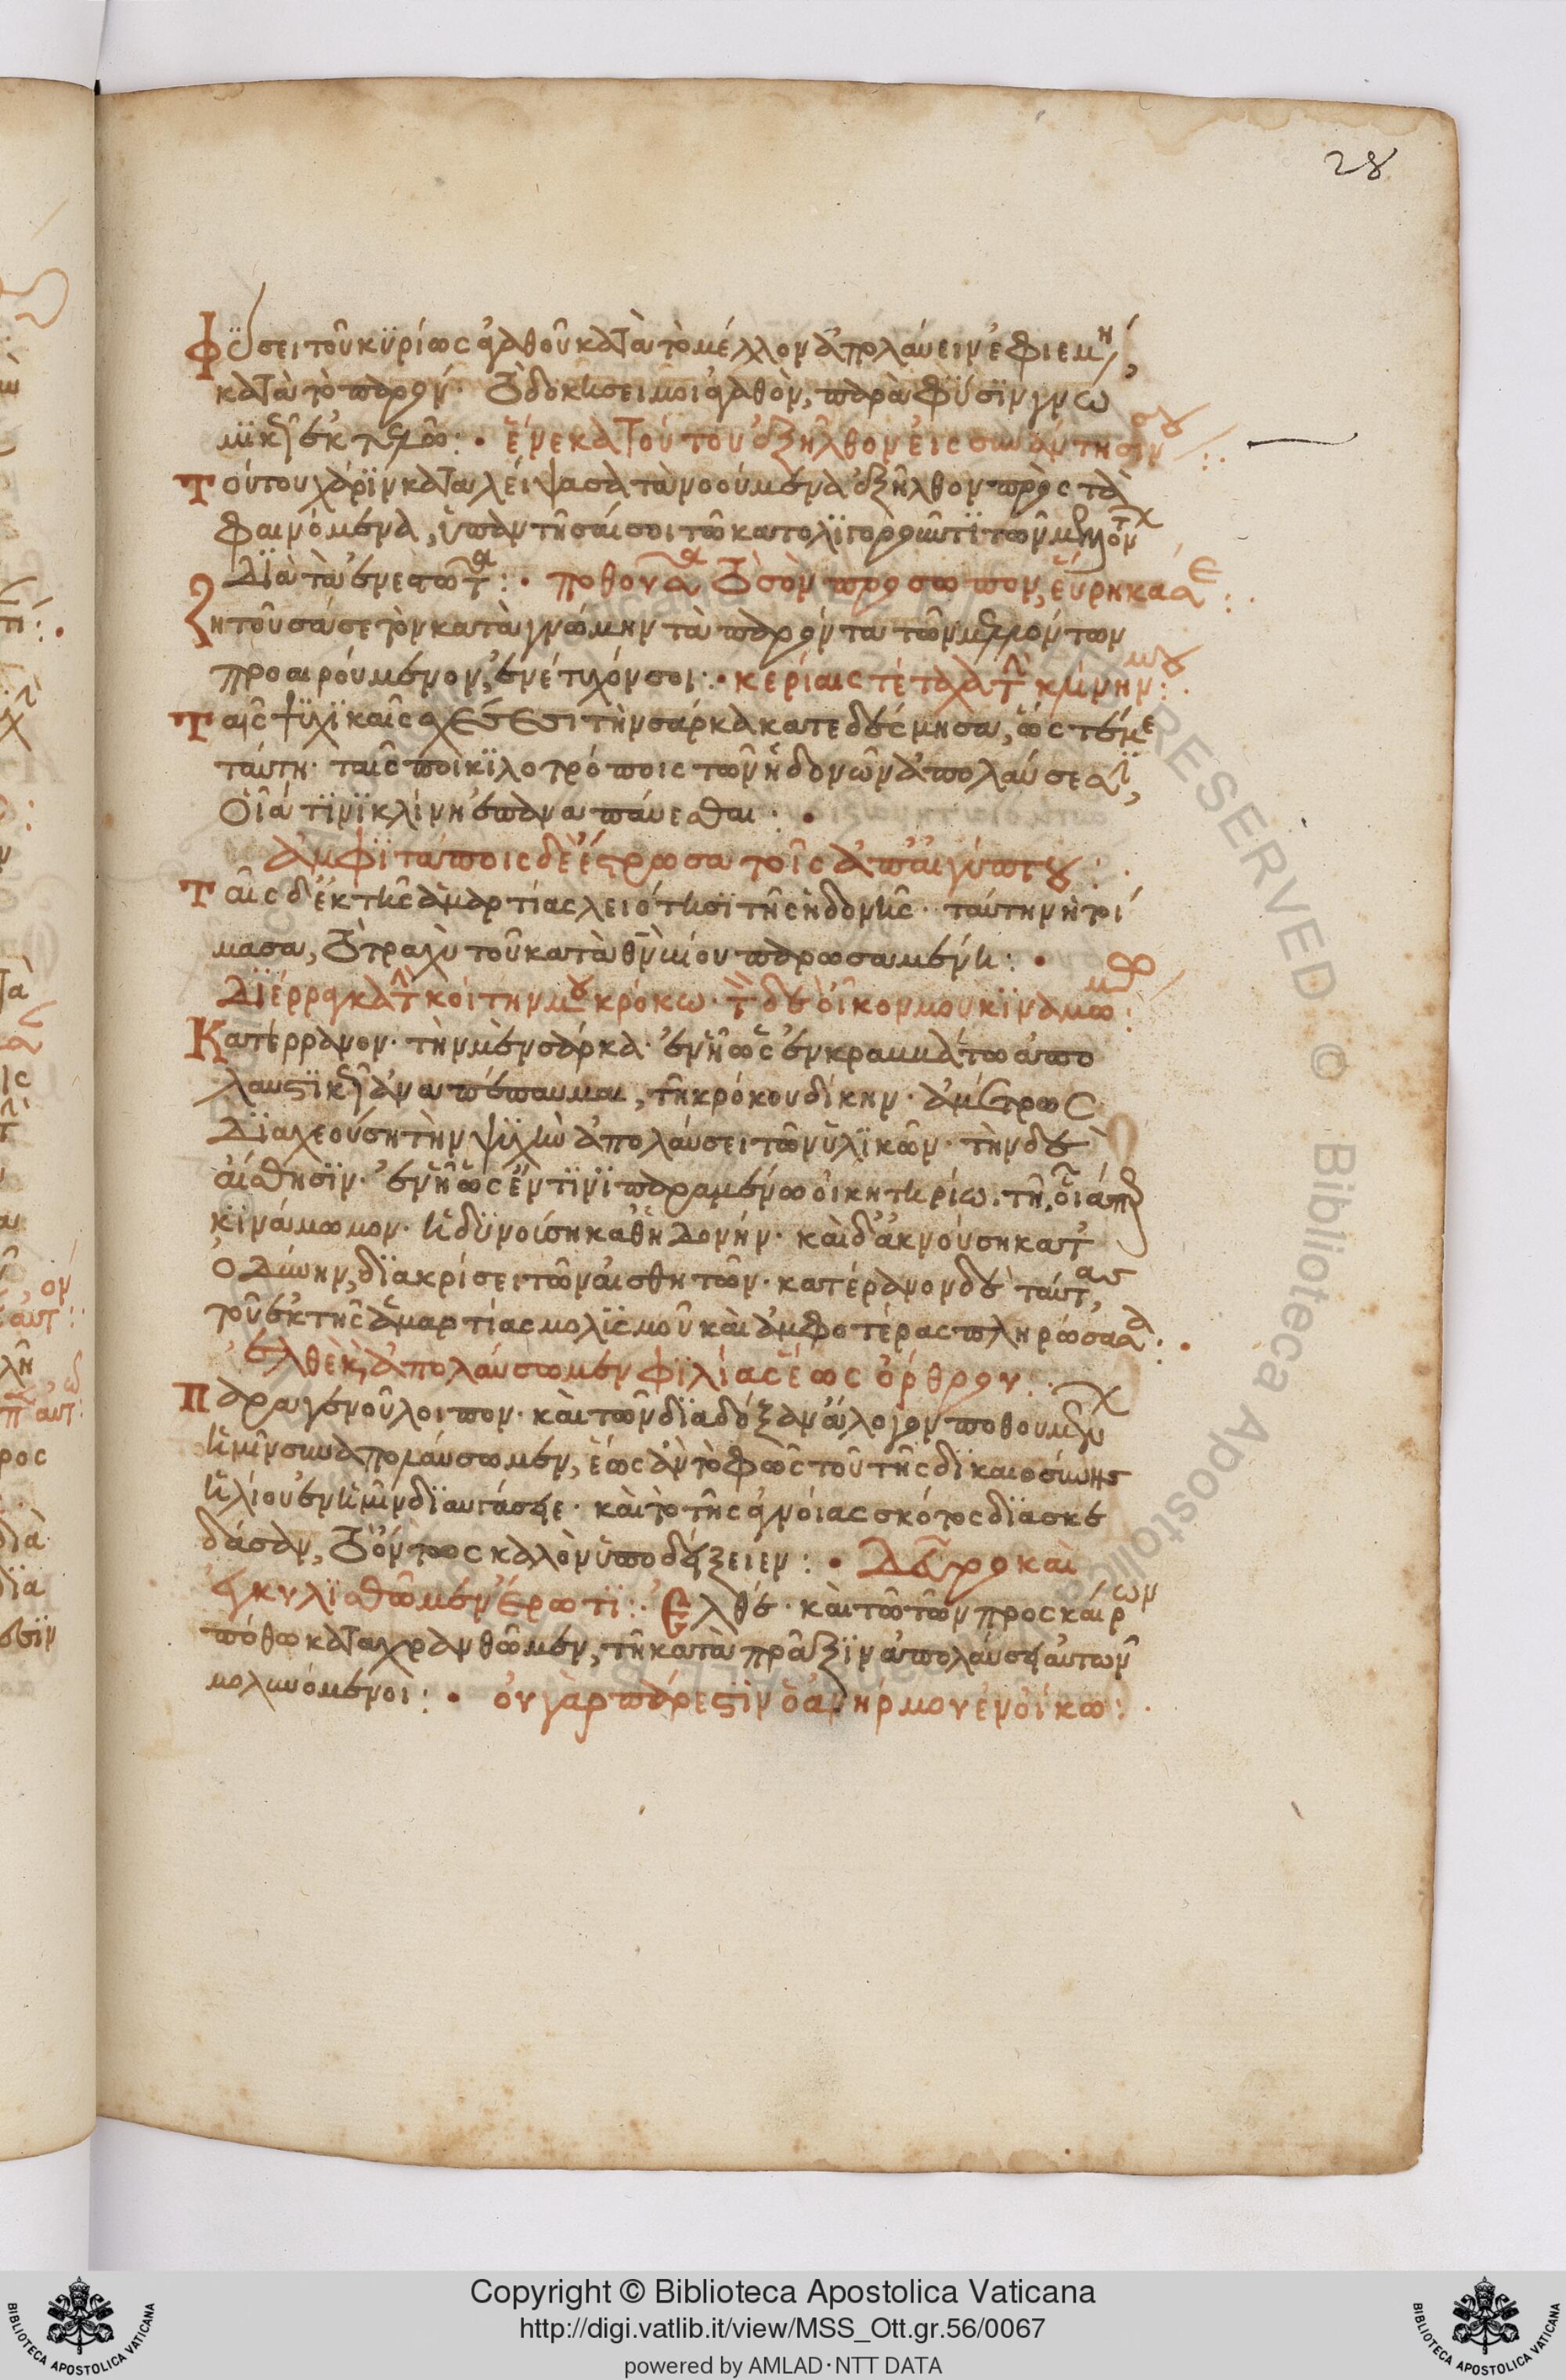 28
φύσει τοῦ κυρίως ἀγαθοῦ κατὰ τὸ μέλλον ἀπολαύειν ἐφιεμ
κατὰ τὸ παρὸν. δοκήσει μοι ἀγαθὸν, παρὰ φύσιν γνω
μικῇ : • ἕνεκα τούτου ἐξῆλθον εἰς συνάντησίν σου :
Τούτου χάριν καταλείψασα τὰ νοούμενα ἐξῆλθον πρὸς τὰ
φαινόμενα, ὑπαντῆσαί σοι τῶ κατολιγοροῦντι τῶν μελλόντ
Διὰ τὰ ἐνεστῶτα : • ποθοῦσα τὸ σὸν πρόσωπον, εὕρηκά σε :
Ζητοῦσά σε τὸν κατὰ γνώμην τὰ παρόντα τῶν μελλόντων
προαιρούμενον, ἐνέτυχόν σοι : • κειρίαις τέτακα τὴν κλίνην μου :
Ταῖς ψυχικαῖς σχέσεσι τὴν σάρκα κατεδέσμησα, ὥς
ταύτη. ταῖς ποικιλοτρόποις τῶν ἡδονῶν ἀπολαύσεσι,
οἷά τινι κλίνη ἐπαναπαύεσθαι : •
ἀμφιτάποις δὲ ἔστρωσα τοῖς ἀπ' αἰγύπτου :
Ταῖς δ' ἐκ τῆς ἁμαρτίας λειότησι τῆς ἡδονῆς. ταύτην ἡτοί
μασα, τὸ τραχὺ τοῦ κατὰ θν βίου παρωσαμένη : •
Διέρραγκα τὴν κοίτην μου κρόκω. τὸν δὲ οἶκόν μου κιναμώμω :
Κατέρρανον. τὴν μὲν σάρκα. ἐν ἧ ὡς ἐν κραββάτω ἀπο
λαυστικῇ ἀναπέπαυμαι, τῇ κρόκου δίκην. ἀμέτρως
Διαχεούση τὴν ψυχὴν ἀπολαύσει τῶν ὑλικῶν. τὴν δὲ
αἴσθησιν. ἐν ἧ ὡς ἔν τινι παραμένω οἰκητηρίω. τῇ, οἷά περ
κινάμωμον. ἡδυνούση καθ' ἡδονήν. καὶ δακνούση κατ'
ὀδύνην, διακρίσει τῶν αἰσθητῶν. κατέρανον δὲ ταύτας,
τοῦ ἐκ τῆς ἁμαρτίας μολισμοῦ καὶ ἀμφοτέρας πληρώσασα : •
ἐλθὲ καὶ ἀπολαύσωμεν φιλίας ἕως ὄρθρου :
Παραγενοῦ λοιπον. καὶ τῶν διαδόξαν ἄλογον ποθουμεν
ἡμῖν συναπολαύσωμεν, ἕως ἂν τὸ φῶς τοῦ τῆς δικαιοσύνης
ἡλίου ἐν ἡμῖν διαυγάσῃ. καὶ τὸ τῆς ἀγνοίας σκότος διασκε
δάσαν, τὸ ὄντως καλὸν ὑποδείξειεν : • Δεῦρο καὶ
ἐγκυλισθῶμεν ἔρωτι : ἐλθὲ. καὶ τῶ τῶν προσκαίρων
πόθω καταχρανθῶμεν, τῇ κατὰ πρᾶξιν ἀπολαύσει αὐτῶν
μολυνόμενοι : • οὐ γὰρ πάρεστιν ὁ ἀνήρ μου ἐν οἴκω :
RESERVED © Biblioteca Apostolica
Copyright © Biblioteca Apostolica Vaticana
http://digi.vatlib.it/view/MSS_Ott.gr.56/0067
powered by AMLAD·NTT DATA
BIBLIOTECA APOSTOLICA VATICANA
BIBLIOTECA APOSTOLICA VATICANA